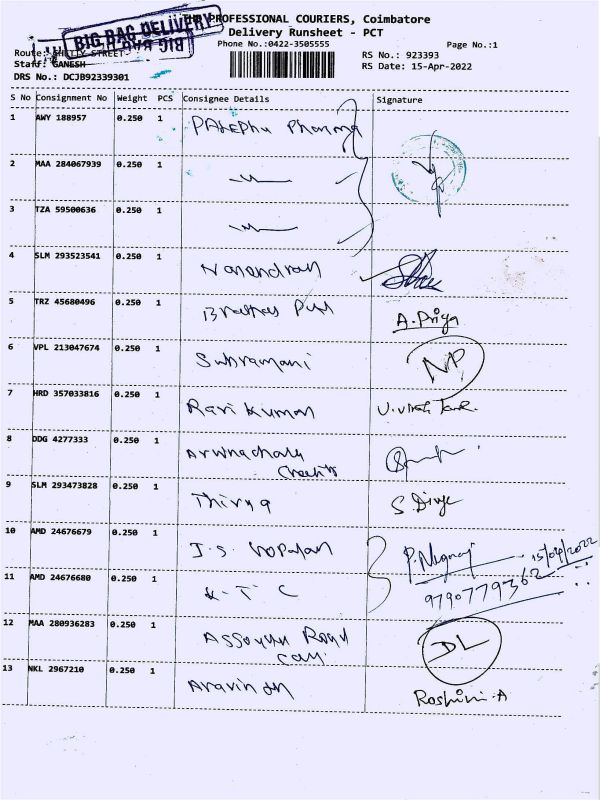 THE PROFESSIONAL COURIERS, Coimbatore
BIG BAG DELIVERY
Delivery Runsheet - PCT
BIG BAG DELIVERY
Phone No.:0422-3505555
Page No.:1
Route: SHETTY STREET
RS No.: 923393
Staff: GANESH
RS Date: 15-Apr-2022
DRS No.: DCJB92339301
S No Consignment No Weight PCS Consignee Details Signature
1 AWY 188957 0.250 1
2 MAA 284067939 0.250 1
3 TZA 59500636 0.250 1
4 SLM 293523541 0.250 1
5 TRZ 45680496 0.250 1 A.Priya
6 VPL 213047674 0.250 1 Subramani NP
7 HRD 357033816 0.250 1 Ravi Kumar
8 DDG 4277333 0.250 1 Arunachala
9 SLM 293473828 0.250 1 Thirug S. Divya
10 AMD 24676679 0.250 1 J.S. Gopalan 15/04/2022
11 AMD 24676680 0.250 1 K-T C 9790779362
12 MAA 280936283 0.250 1 Road DL
13 NKL 2967210 0.250 1 Aravindh Roshini.A